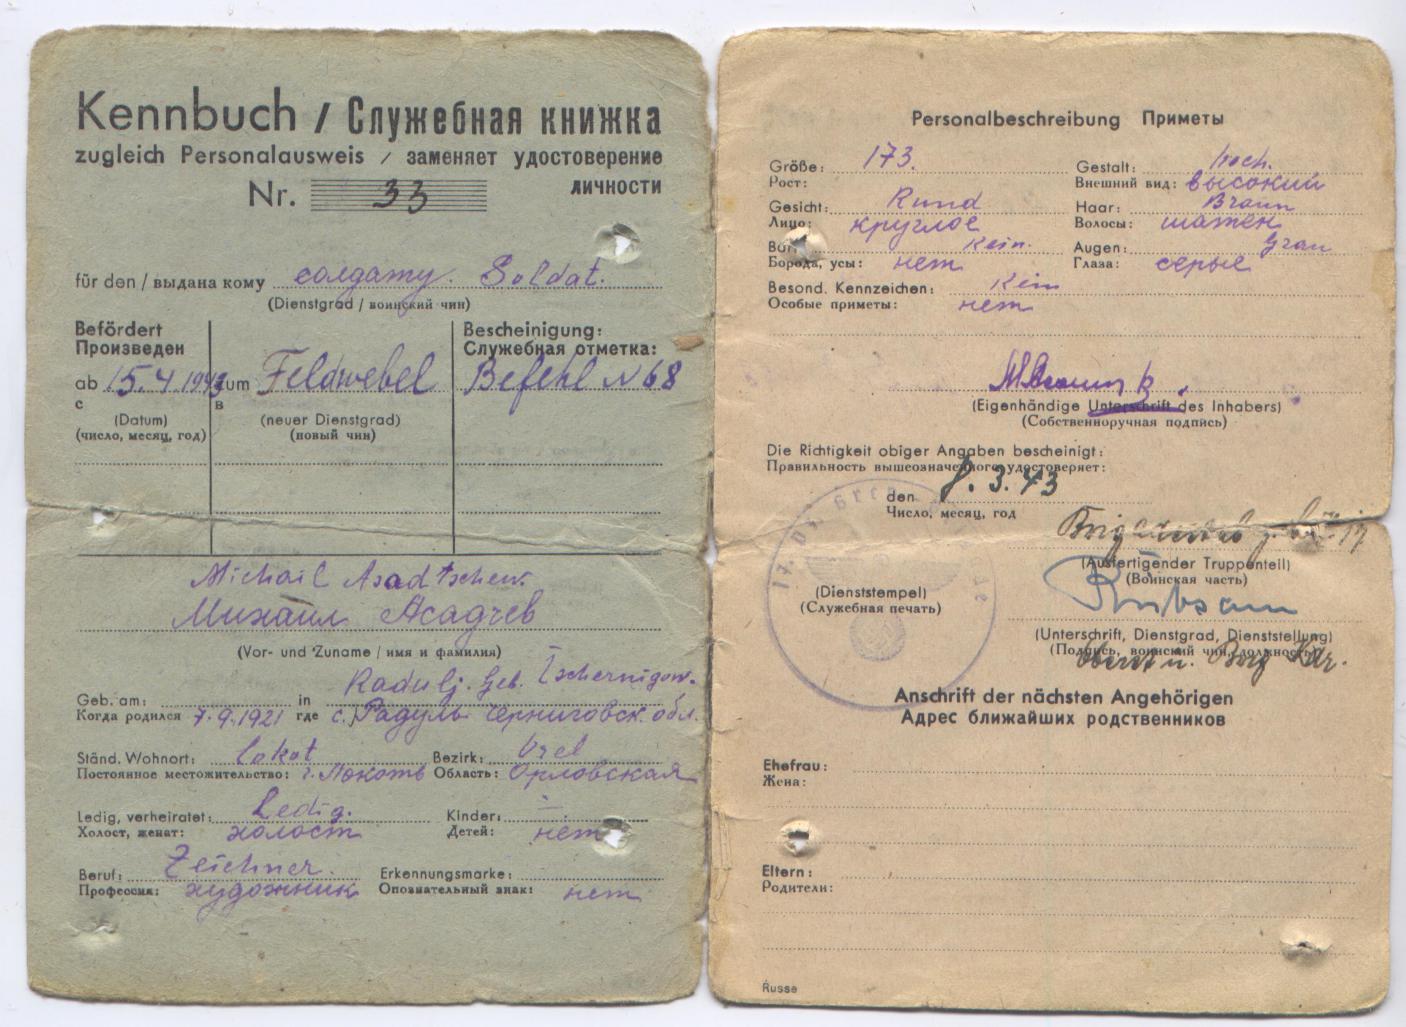 Kennbuch / Служебная книжка
zugleich Personalausweis / заменяет удостоверение
Nr. 33 личности
für den / выдана кому солдату. Soldat.
(Dienstgrad / воинский чин)
Befördert
Произведен
Bescheinigung:
Служебная отметка:
ab 15.4.1943 zum Feldwebel Befehl N 68
с в
(Datum) (neuer Dienstgrad)
(число, месяц, год) (новый чин)
Michail Asadtschew.
Михаил Асадчев
(Vor- und Zuname / имя и фамилия)
Radulj. Geb. Tschernigow.
Geb. am: in
Когда родился 7.9.1921 где с. Радуль Черниговск. обл.
Ständ. Wohnort: Lokot Bezirk: Orel
Постоянное местожительство: г. Локоть Область: Орловская
Ledig, verheiratet: Ledig. Kinder: —
Холост, женат: холост Детей: нет
Beruf: Zeichner. Erkennungsmarke:
Профессия: художник Опознательный знак: нет
Personalbeschreibung Приметы
Größe: 173. Gestalt: hoch.
Рост: Внешний вид: высокий
Gesicht: Rund Haar: Braun
Лицо: круглое Волосы: шатен
Kein. Augen: Grau
Борода, усы: нет Глаза: серые
Besond. Kennzeichen: Kein
Особые приметы: нет
(Eigenhändige Unterschrift des Inhabers)
(Собственноручная подпись)
Die Richtigkeit obiger Angaben bescheinigt:
Правильность вышеозначенного удостоверяет:
den 8.3.43
Число, месяц, год
(Ausfertigender Truppenteil)
(Воинская часть)
(Dienststempel)
(Служебная печать)
(Unterschrift, Dienstgrad, Dienststellung)
(Подпись, воинский чин, должность)
Anschrift der nächsten Angehörigen
Адрес ближайших родственников
Ehefrau:
Жена:
Eltern:
Родители:
Russe